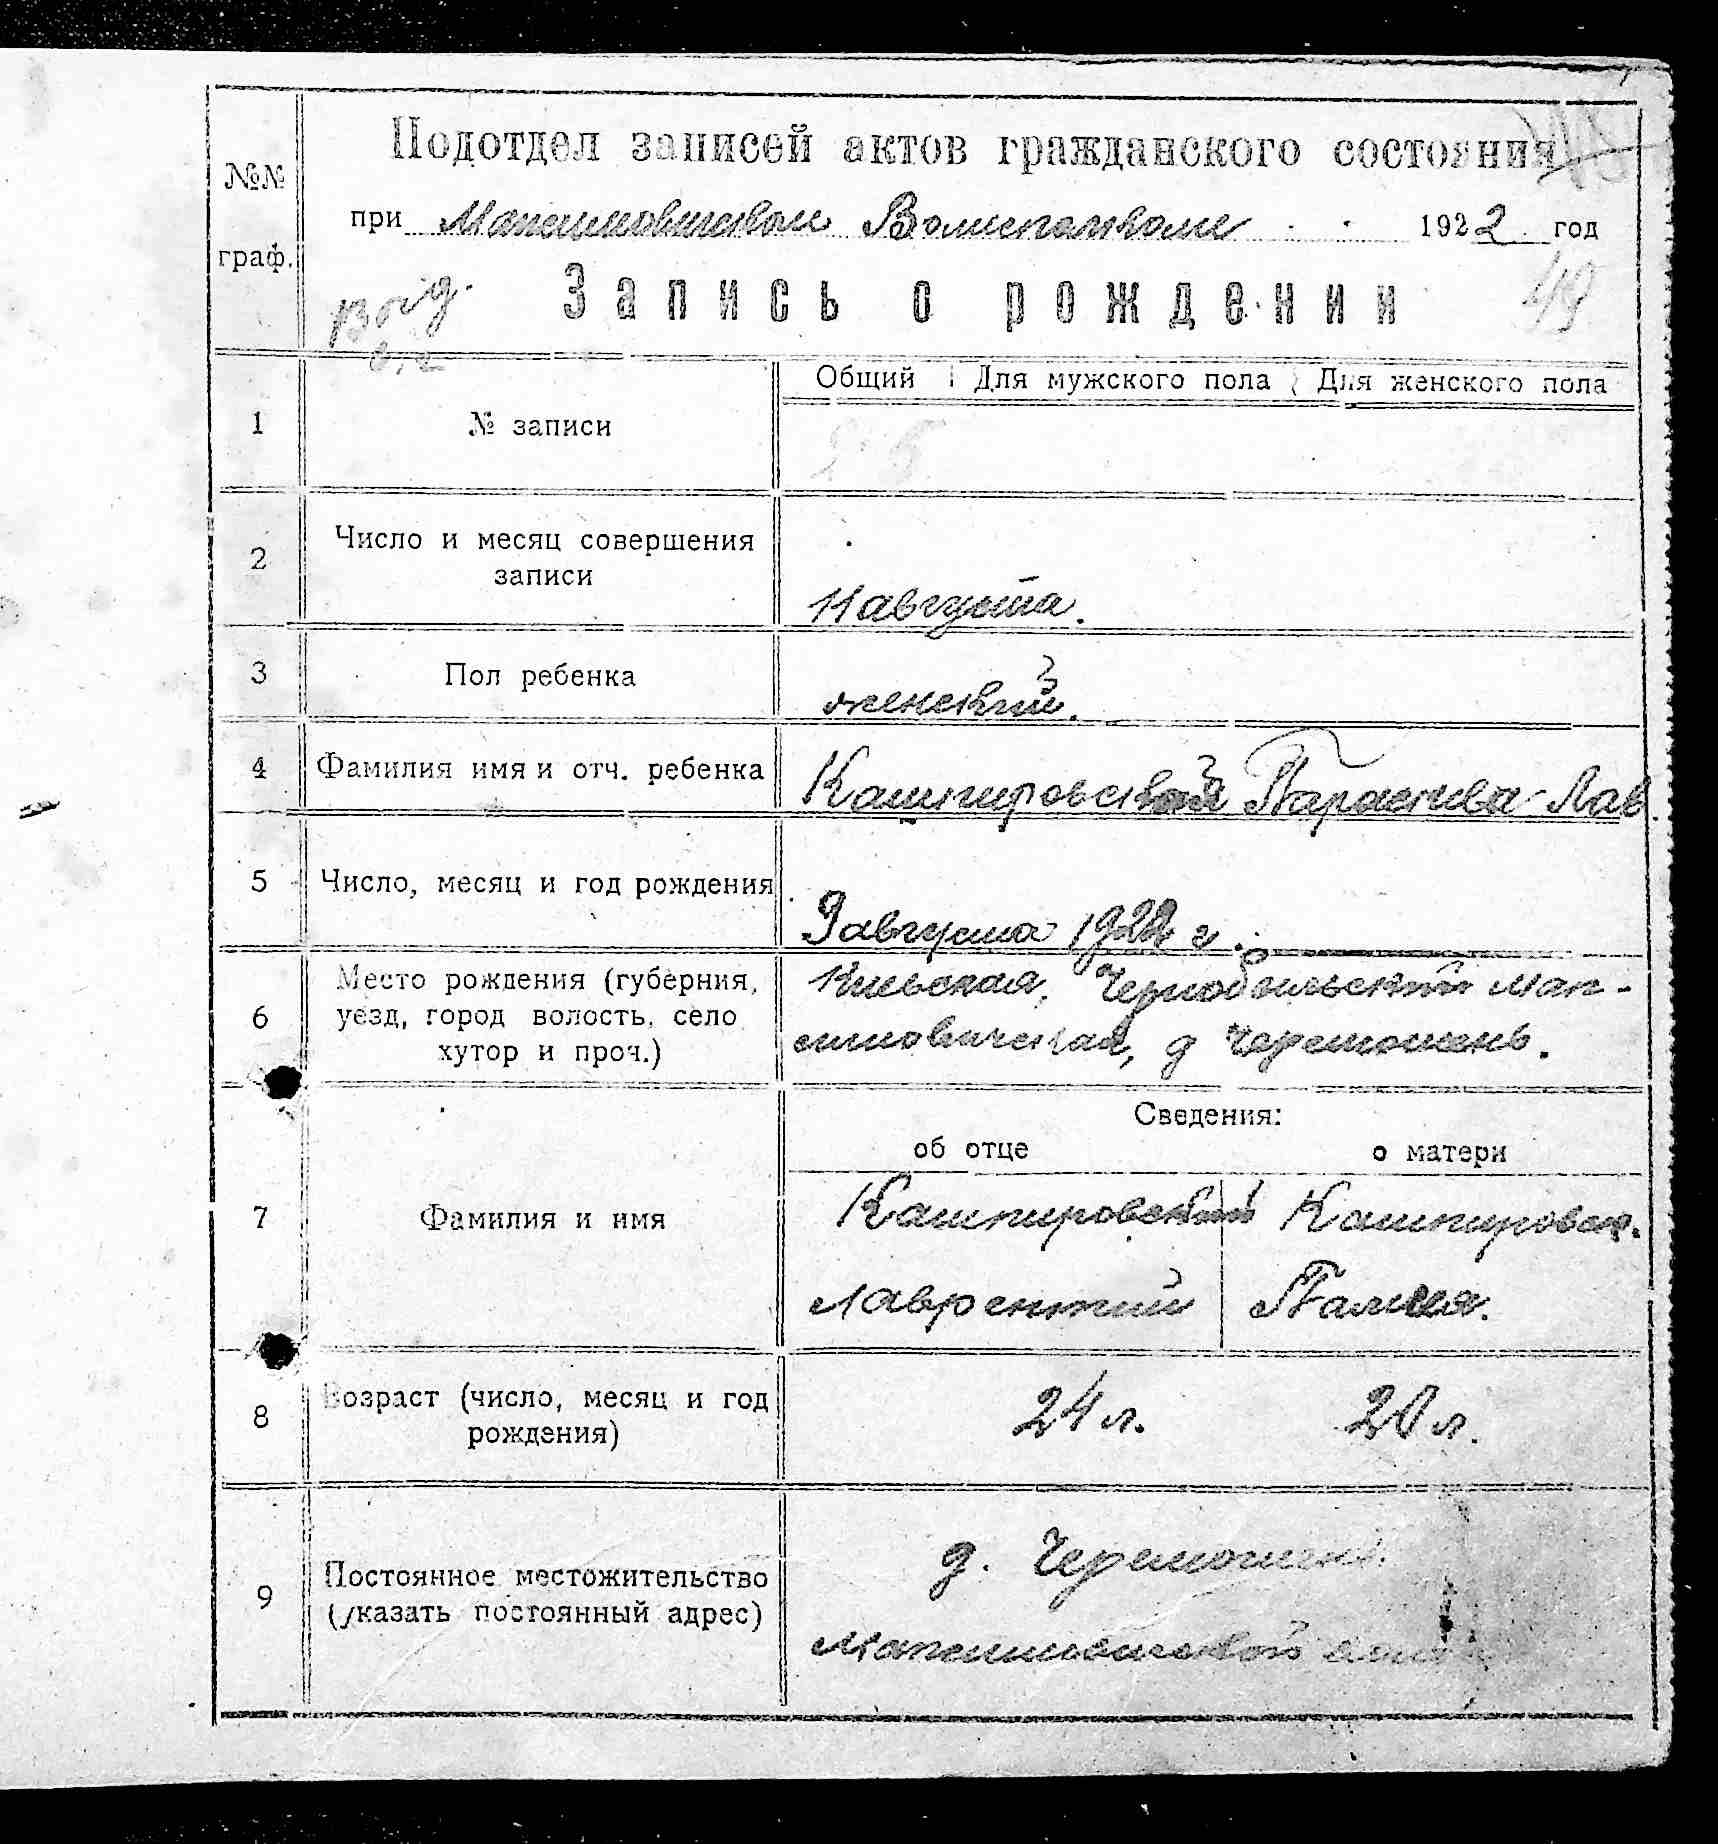 №№ граф.
Подотдел записей актов гражданского состояния
при Максимовичском Волисполкоме 1922 год
Выд.
Запись о рождении
49
Общий Для мужского пола Для женского пола
1 № записи
2 Число и месяц совершения
записи
11 августа.
3 Пол ребенка женский.
4 Фамилия имя и отч. ребенка Кашпировская Параскева Лав.
5 Число, месяц и год рождения
9 августа 1922 г.
6 Место рождения (губерния,
уезд, город волость, село
хутор и проч.)
Киевская, Чернобыльский Мак-
симовичская, д Черемошень.
Сведения:
об отце о матери
7 Фамилия и имя
Кашпировский Кашпировск.
Лаврентий
8 Возраст (число, месяц и год
рождения)
24 л. 20 л.
9 Постоянное местожительство
(указать постоянный адрес)
д. Черемошень
Максимовичской